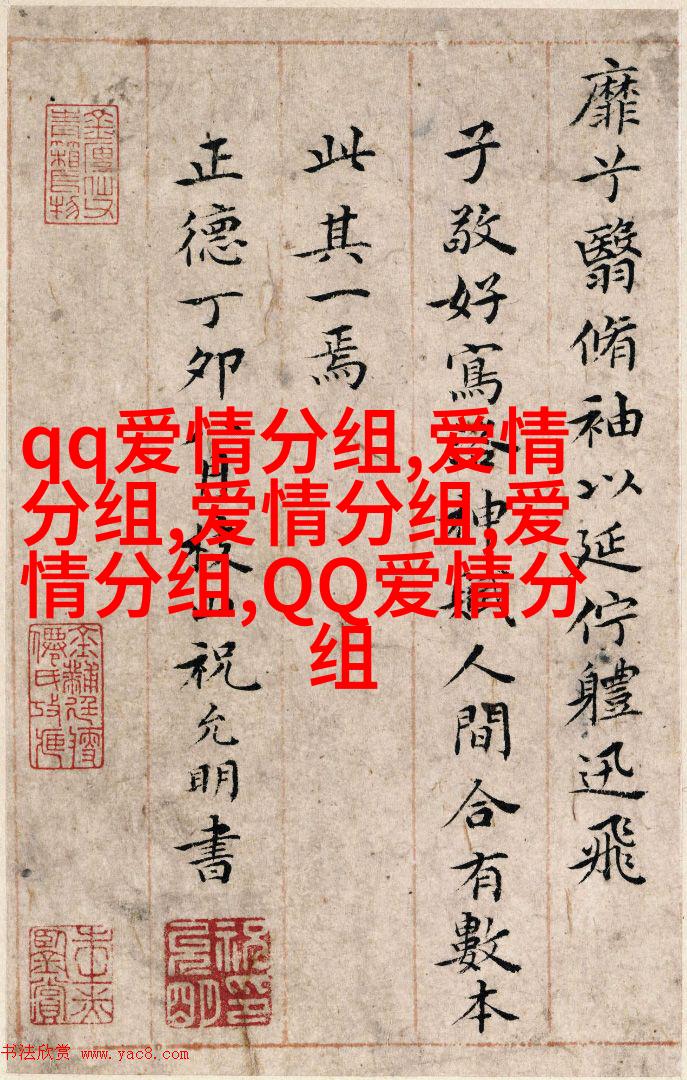 靡兮翳脩袖以延佇體迅飛
子敬好寫洛神賦人間合有數本
此其一焉
正德丁卯 祝允明書
qq爱情分组,爱情
分组,爱情分组,爱
情分组,QQ爱情分
组
书法欣赏 www.yac8.com